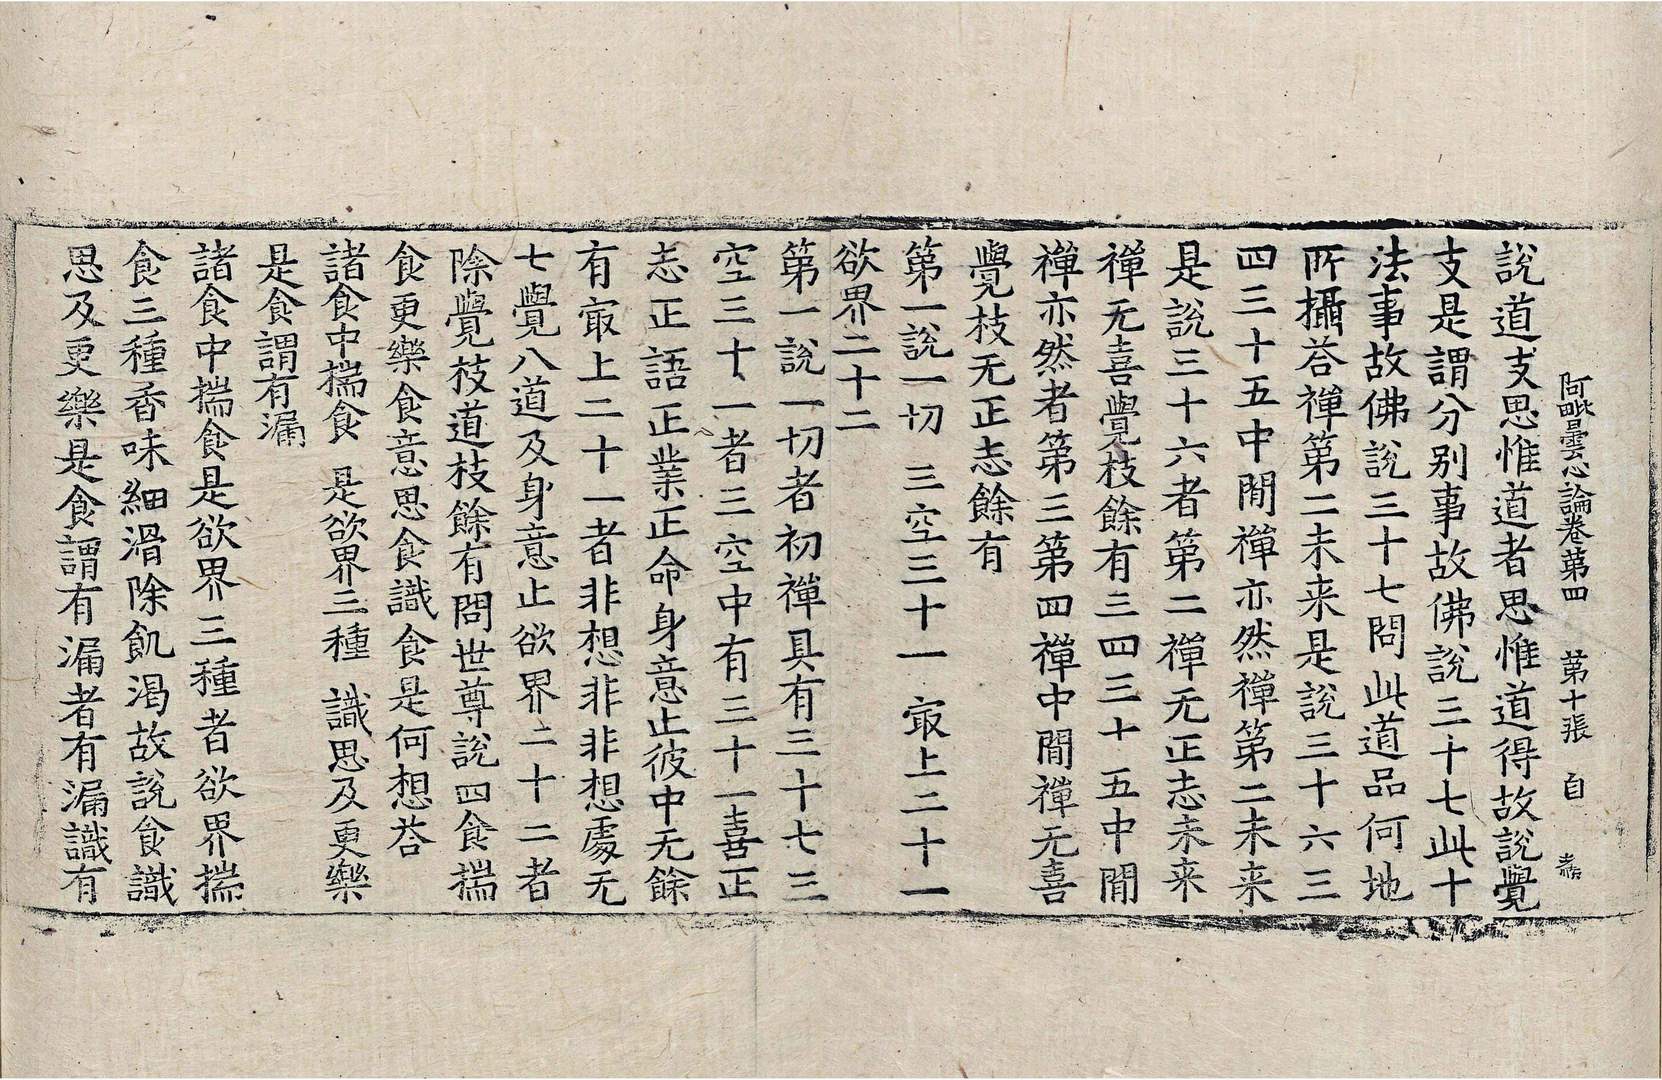 阿毗曇心論卷第四 第十張 自
說道支思惟道者思惟道得故說覺
支是謂分別事故佛說三十七此十
法事故佛說三十七問此道品何地
所攝荅禪第二未來是說三十六三
四三十五中閒禪亦然禪第二未來
是說三十六者第二禪无正志未來
禪无喜覺枝餘有三四三十五中閒
禪亦然者第三第四禪中閒禪无喜
覺枝无正志餘有
第一說一切 三空三十一 㝡上二十一
欲界二十二
第一說一切者初禪具有三十七三
空三十一者三空中有三十一喜正
志正語正業正命身意止彼中无餘
有㝡上二十一者非想非非想處无
七覺八道及身意止欲界二十二者
除覺枝道枝餘有問世尊說四食揣
食更樂食意思食識食是何想荅
諸食中揣食 是欲界三種 識思及更樂
是食謂有漏
諸食中揣食是欲界三種者欲界揣
食三種香味細滑除飢渴故說食識
思及更樂是食謂有漏者有漏識有